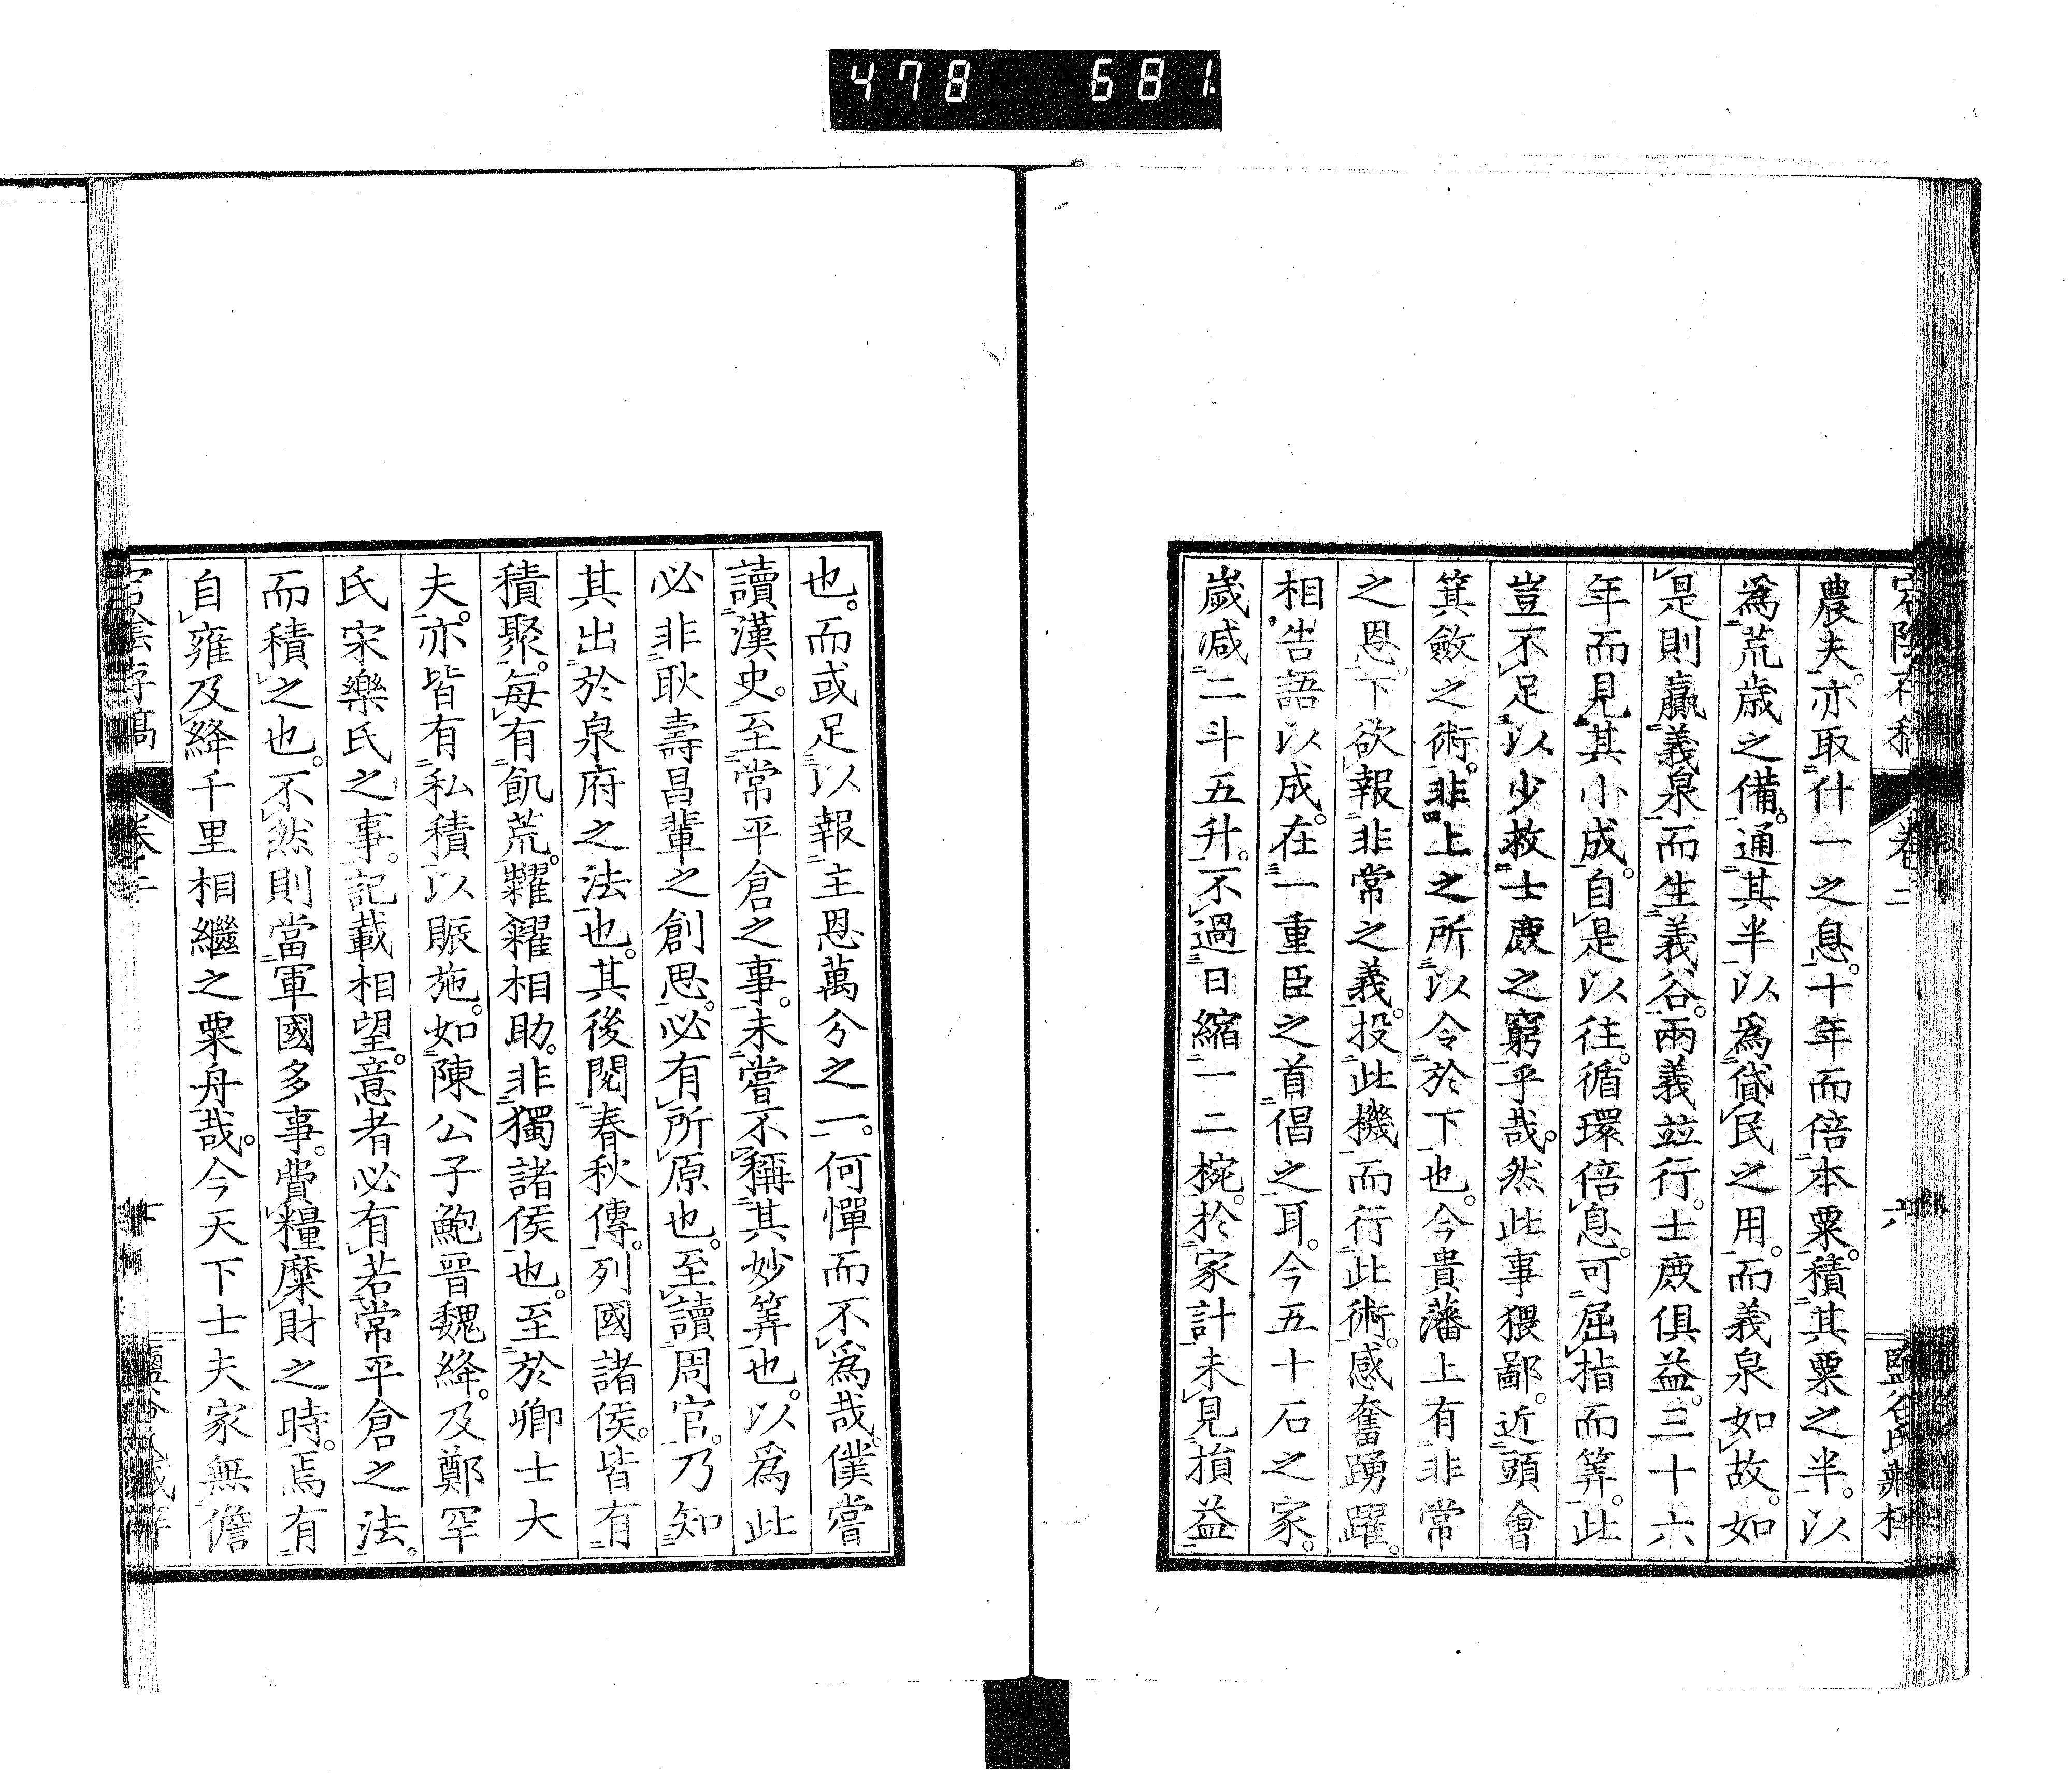 478 681
宕陰存稿 卷二 六
農夫。亦取什一之息。十年而倍本粟。積其粟之半。以
爲荒歲之備。通其半以爲貸民之用。而義泉如故。如
是則贏義泉而生義谷。兩義並行。士庶俱益。三十六
年而見其小成。自是以往。循環倍息。可屈指而筭。此
豈不足以少救士庶之窮乎哉。然此事猥鄙。近頭會
箕斂之術。非上之所以令於下也。今貴藩上有非常
之恩。下欲報非常之義。投此機而行此術。感奮踴躍。
相告語以成。在一重臣之首倡之耳。今五十石之家。
歲減二斗五升。不過日縮一二椀。於家計未見損益
也。而或足以報主恩萬分之一。何憚而不爲哉。僕嘗
讀漢史。至常平倉之事。未嘗不稱其妙筭也。以爲此
必非耿壽昌輩之創思。必有所原也。至讀周官。乃知
其出於泉府之法也。其後閱春秋傳。列國諸侯。皆有
積聚。每有飢荒。糶糴相助。非獨諸侯也。至於卿士大
夫。亦皆有私積以賑施。如陳公子鮑晉魏絳。及鄭罕
氏宋樂氏之事。記載相望。意者必有若常平倉之法。
而積之也。不然則當軍國多事。費糧糜財之時。焉有
自雍及絳千里相繼之粟舟哉。今天下士夫家無儋
宕陰存稿 卷二